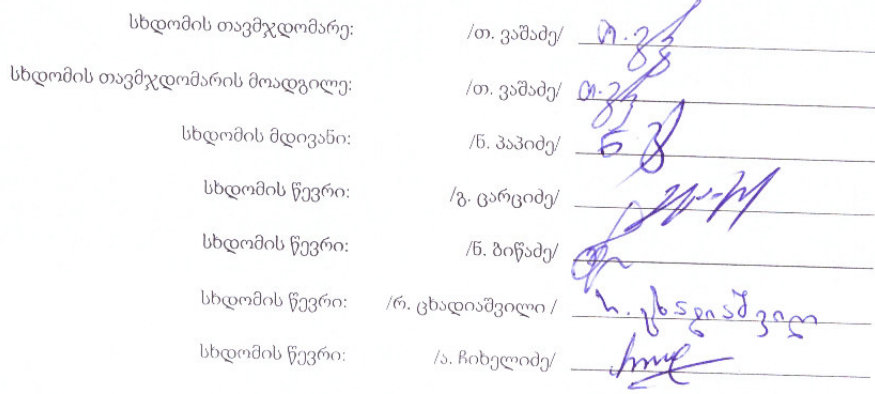 სხდომის თავმჯდომარე: /თ. ვაშაძე/ თ. ვ
სხდომის თავმჯდომარის მოადგილე: /თ. ვაშაძე/ თ. ვ
სხდომის მდივანი: /ნ. პაპიძე/ ნ
სხდომის წევრი: /გ. ცარციძე/
სხდომის წევრი: /ნ. ბიწაძე/
სხდომის წევრი: /რ. ცხადიაშვილი / რ. ცხადიაშვილი
სხდომის წევრი: /ა. ჩიხელიძე/